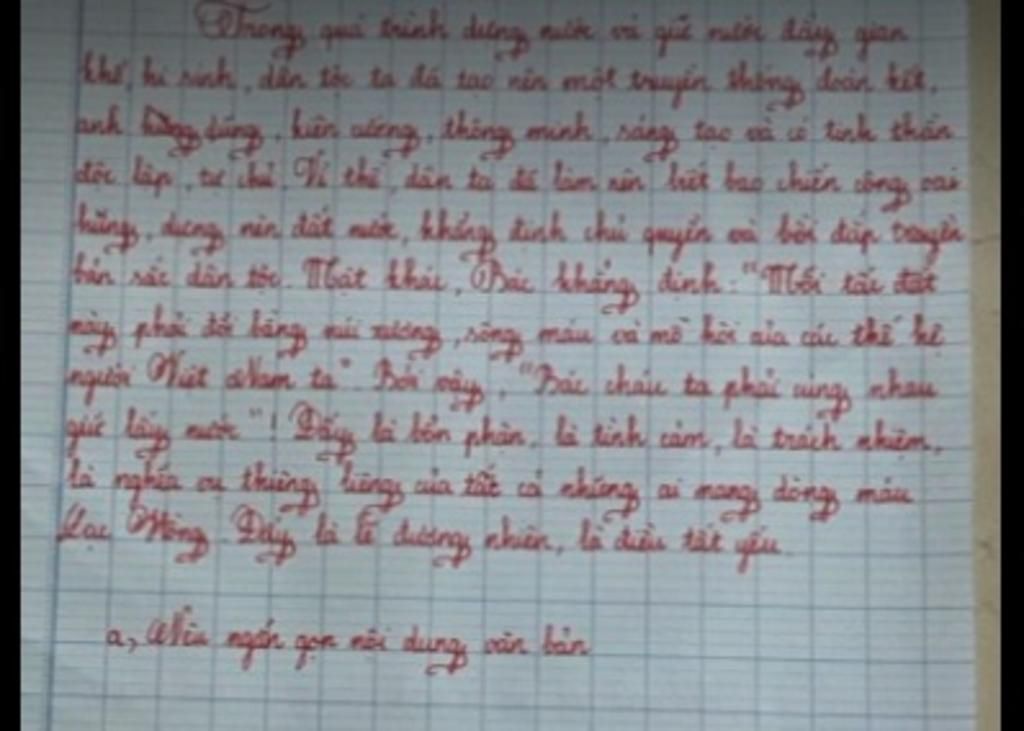 Trong quá trình dựng nước và giữ nước đầy gian
khổ, hi sinh, dân tộc ta đã tạo nên một truyền thống đoàn kết,
anh dũng, kiên cường, thông minh, sáng tạo và có tinh thần
độc lập, tự chủ. Vì thế, dân ta đã làm nên biết bao chiến công oai
hùng, dựng nên đất nước, khẳng định chủ quyền và bồi đắp truyền
bản sắc dân tộc. Mặt khác, Bác khẳng định: "Mỗi tấc đất
này phải đổi bằng núi xương, sông máu và mồ hôi của các thế hệ
người Việt Nam ta". Bởi vậy, "Bác cháu ta phải cùng nhau
giữ lấy nước"! Đấy là bổn phận, là tình cảm, là trách nhiệm,
là nghĩa vụ thiêng liêng của tất cả những ai mang dòng máu
Lạc Hồng. Đấy là lẽ đương nhiên, là điều tất yếu.
a, Nêu ngắn gọn nội dung văn bản